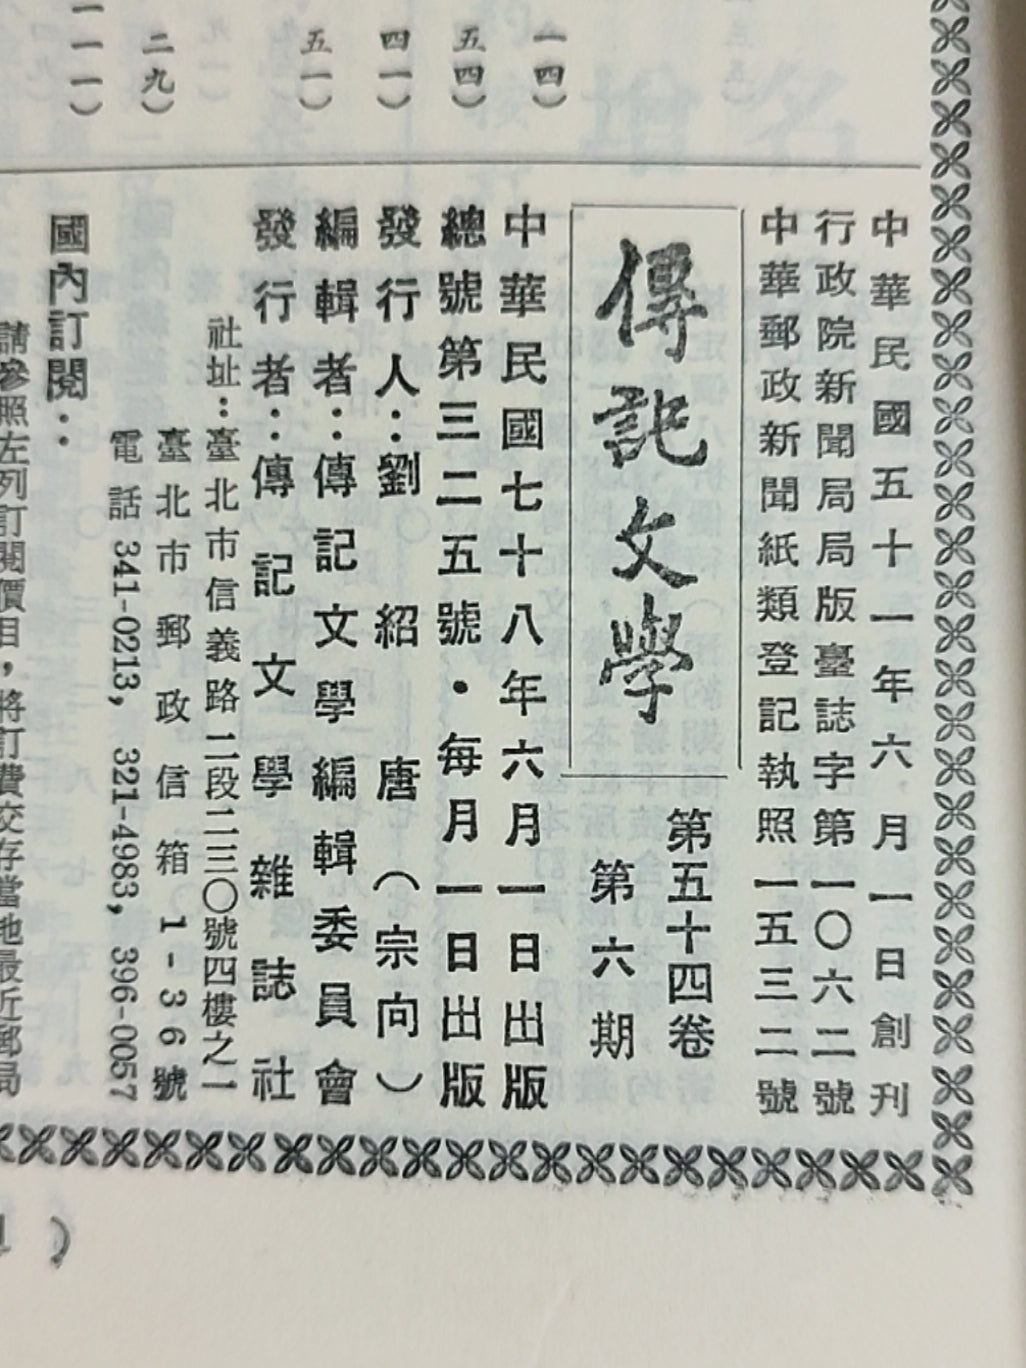 一四）
五四）
四一）
五一）
二九）
中華民國五十一年六月一日創刊
行政院新聞局局版臺誌字第一〇六二號
中華郵政新聞紙類登記執照一五三二號
傳記文學
第五十四卷
第六期
中華民國七十八年六月一日出版
總號第三二五號・每月一日出版
發行人：劉紹唐（宗向）
編輯者：傳記文學編輯委員會
發行者：傳記文學雜誌社
社址：臺北市信義路二段二三〇號四樓之一
臺北市郵政信箱1-36號
電話341-0213, 321-4983, 396-0057
國內訂閱：
請參照左列訂閱價目，將訂費交存當地最近郵局